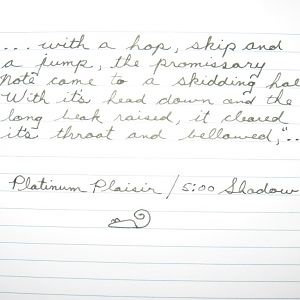 ... with a hop, skip and
a jump, the promissary
Note came to a skidding hal
With it's head down and the
long beak raised, it cleared
it's throat and bellowed,"..
Platinum Plaisir / 5:00 Shadow